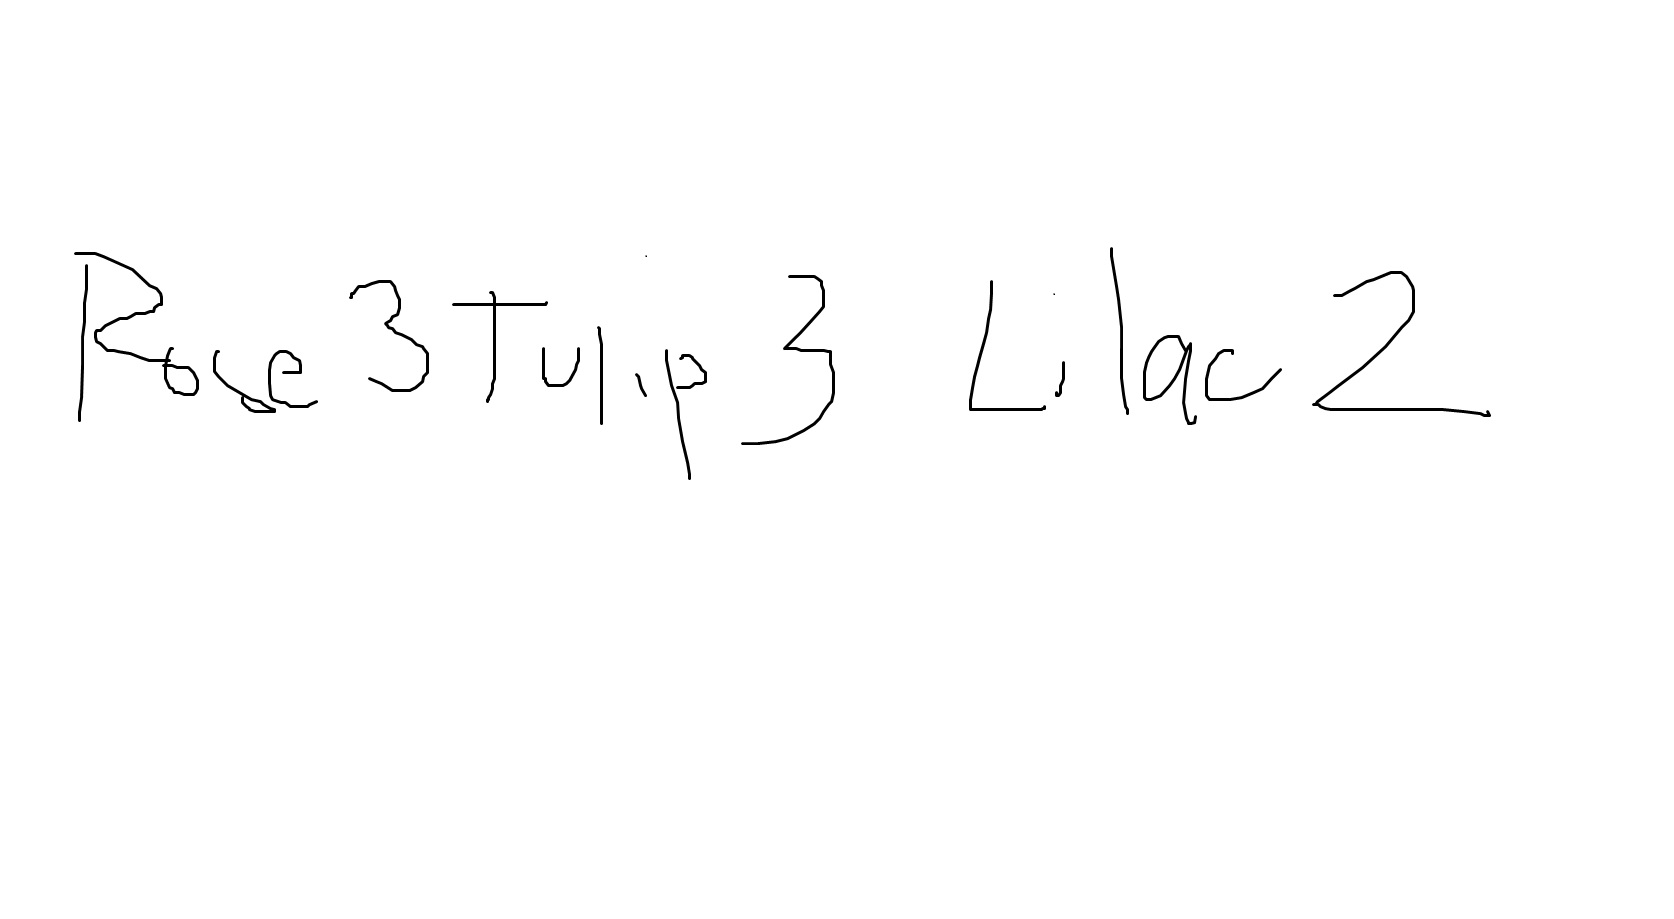 Rose 3 Tulip 3 Lilac 2